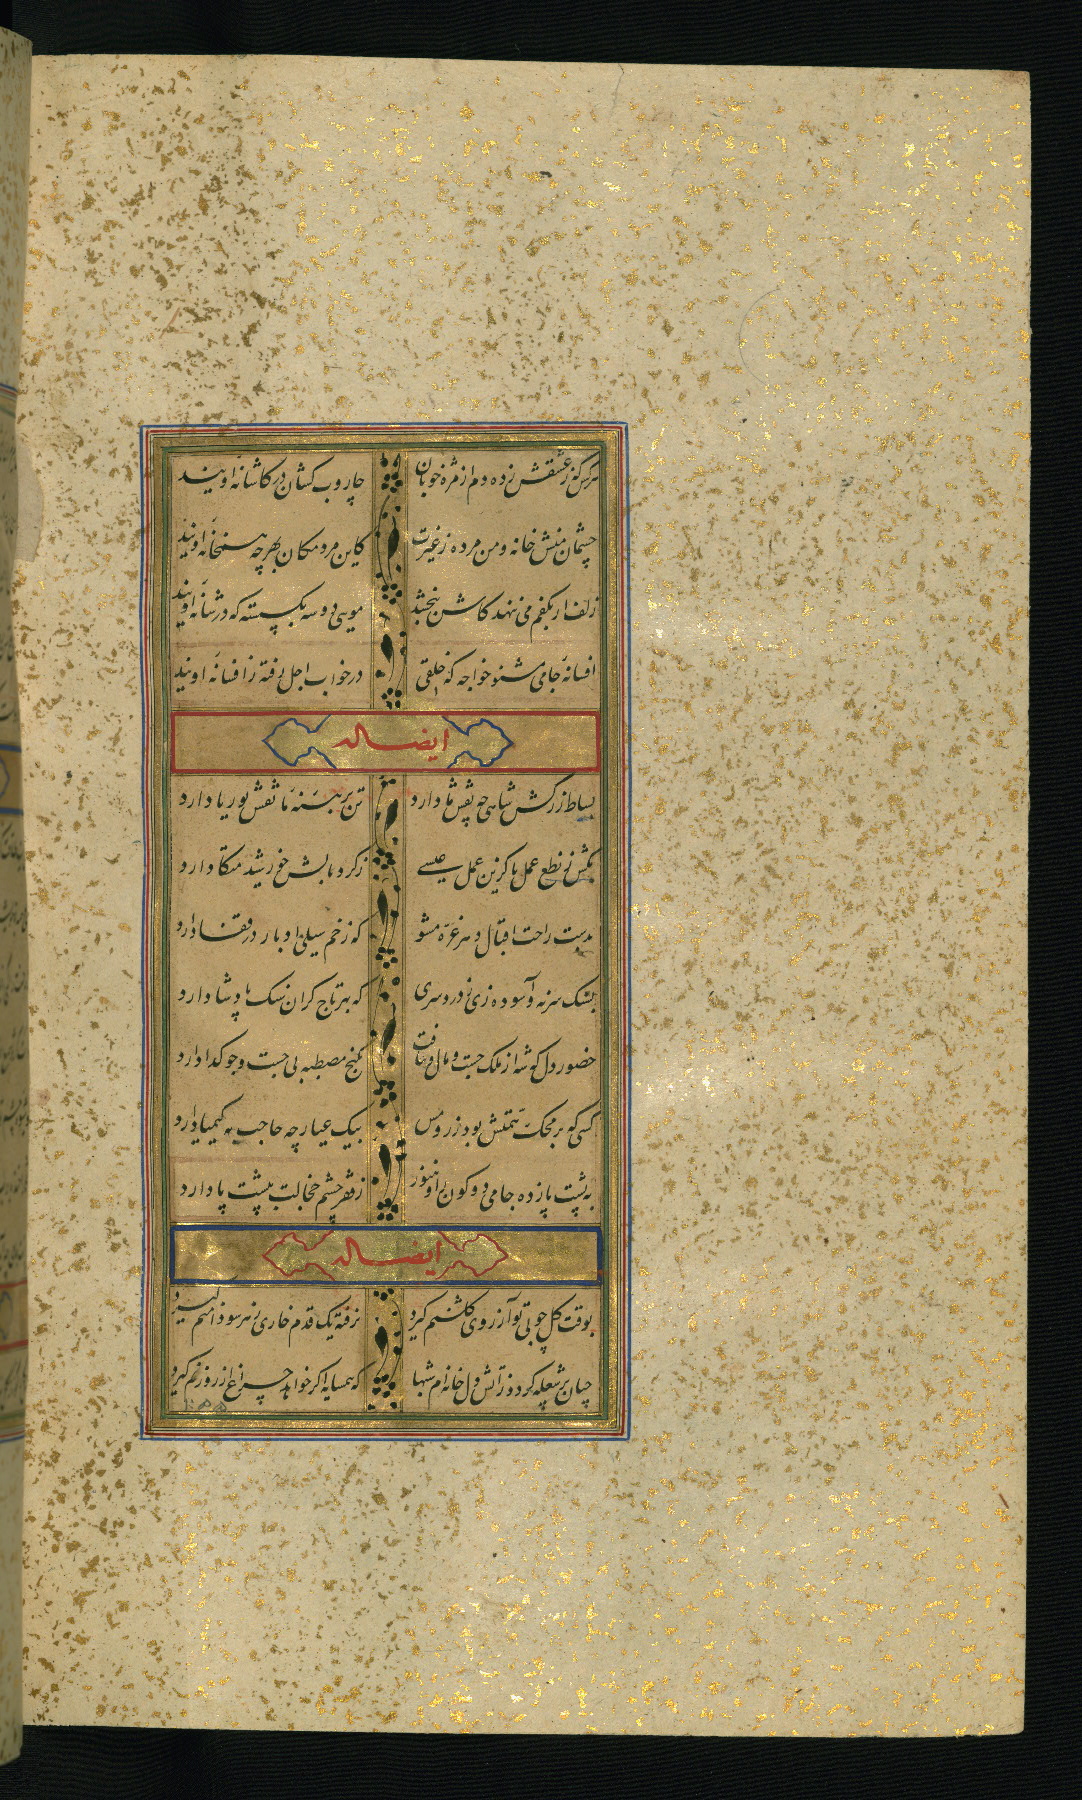 هرکس که ز عشقش زده دم از مژه خوبان چاروب کشان در کاشانه اویند
چشمان منش خانه و من مرده ز غیرت کاین مردمکان بهر چه همخانه اویند
زلف ار بکفم می ننهد کاش ببخشد مویی دو سه بگسسته که در شانه اویند
افسانه جامی شنو خواجه که خلقی در خواب اجل رفته ز افسانه اویند
ایضا له
بساط زرکش شاهی چه نقش ما دارد تن برهنه ما نقش بوریا دارد
بکش ز نطع عمل پا کزین عمل عیسی ز گرد بالش خورشید متکا دارد
بدست راحت اقبال دهر غره مشو که زخم سیلی ادبار در قفا دارد
بسنگ سر نه و آسوده زی ز دردسری که بهر تاج گران سنگ پادشا دارد
حضور دل که شه از ملک جست و مال و نیافت بکنج مصطبه بی جست و جو گدا دارد
کسی که بر محک همتش بود زر و مس بیک عیار چه حاجت به کیمیا دارد
به پشت پا زده جامی دو کون را و هنوز ز فقر چشم خجالت بپشت پا دارد
ایضا له
بوقت گل چو بی تو آرزوی گلشنم گیرد نرفته یک قدم خاری ز هر سو دامنم گیرد
چنان پر شعله گردد ز آتش دل خانه ام شبها که همسایه اگر خواهد چراغ از روزنم گیرد